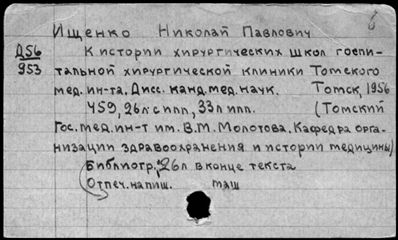 Ищенко Николай Павлович
Д56
953
К истории хирургических школ госпи-
тальной хирургической клиники Томского
мед. ин-та. Дисс. канд. мед. наук. Томск, 1956
459, 26л с илл, 33л илл. (Томский
Гос. мед. ин-т им. В.М. Молотова. Кафедра орга-
низации здравоохранения и истории медицины)
Библиогр. 26л в конце текста
Отпеч. на пиш. маш